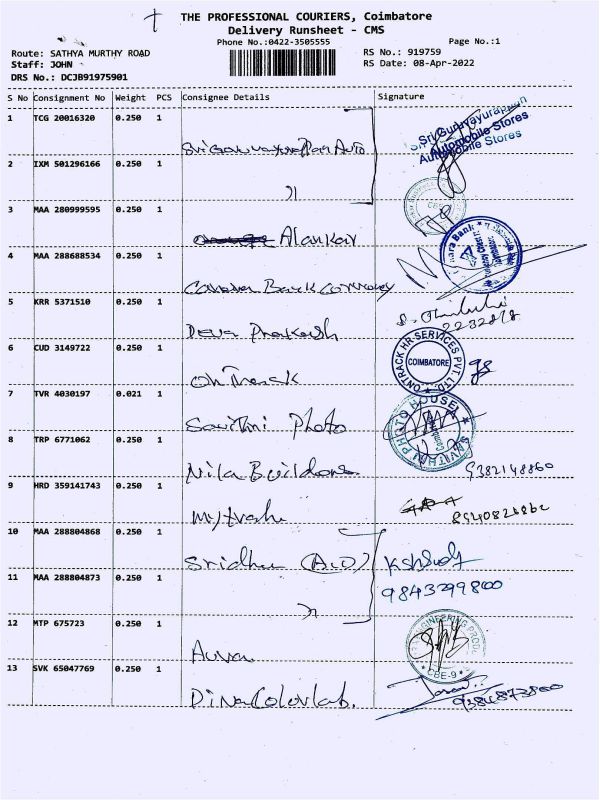 THE PROFESSIONAL COURIERS, Coimbatore
Delivery Runsheet - CMS
Phone No.:0422-3505555
Page No.:1
Route: SATHYA MURTHY ROAD
RS No.: 919759
Staff: JOHN
RS Date: 08-Apr-2022
DRS No.: DCJB91975901
S No Consignment No Weight PCS Consignee Details Signature
1 TCG 20016320 0.250 1
Sri Guruvayurappan Auto
Sri Guruvayurappan
Automobile Stores
Automobile Stores
2 IXM 501296166 0.250 1
3 MAA 280999595 0.250 1
Alankar
4 MAA 288688534 0.250 1
Canara Bank Currency
Canara Bank
5 KRR 5371510 0.250 1
Deva Prakash
2232818
6 CUD 3149722 0.250 1
OnTrack
ONTRACK HR SERVICES PVT. LTD.
COIMBATORE
7 TVR 4030197 0.021 1
Savithri Photo
SAVITHRI PHOTO HOUSE
8 TRP 6771062 0.250 1
Nila Builders
9382148860
9 HRD 359141743 0.250 1
10 MAA 288804868 0.250 1
Sridhar
9843299800
11 MAA 288804873 0.250 1
12 MTP 675723 0.250 1
ENGINEERING PROD
CBE-9
13 SVK 65047769 0.250 1
Dina Colorlab.
9384873860